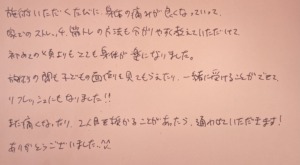 施術いただくたびに、身体の痛みが良くなっていって、
家でのストレッチ、筋トレの方法も分かりやすく教えていただけて
初めての時よりもとても身体が楽になりました。
施術の間も子どもの面倒も見てもらえたり、一緒に受けることができて、
リフレッシュにもなりました!!
また痛くなったり、2人目を授かることがあったら、通わせていただきます!
ありがとうございました。